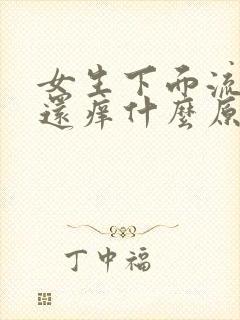 女生下而流
還痒什麼原
丁中福